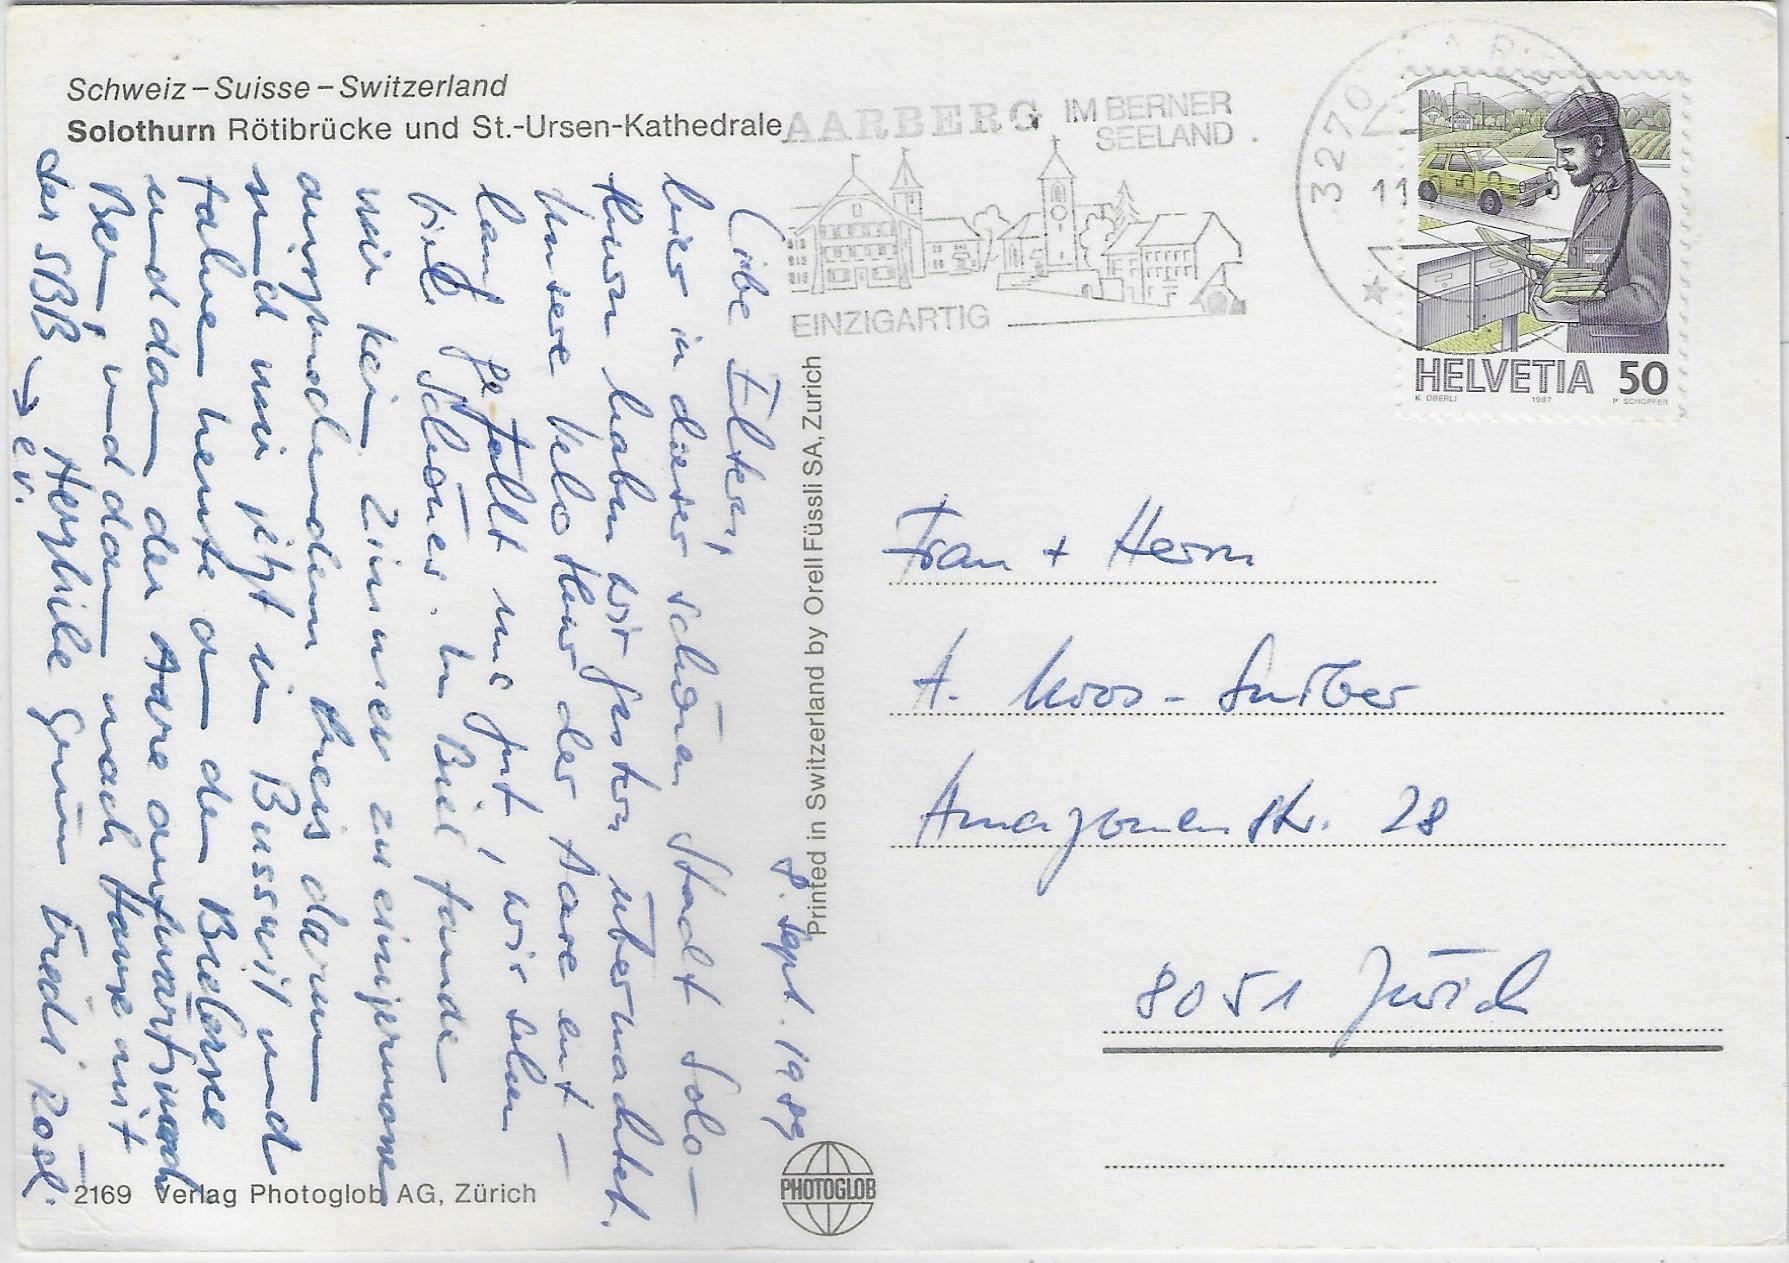 Schweiz – Suisse – Switzerland
Solothurn Rötibrücke und St.-Ursen-Kathedrale
AARBERG IM BERNER
SEELAND
EINZIGARTIG
3270
11
HELVETIA 50
K. OBERLI 1987 P. SCHOPFER
8. Sept. 1989
Liebe Eltern,
hier in dieser schönen Stadt Solo-
thurn haben wir gestern übernachtet.
Unsere Velotour der Aare ent-
lang gefällt uns gut, wir sehen
viel Schönes. In Biel fanden
wir kein Zimmer zu einigermassen
ansprechendem Preis darum
sind wir jetzt in Busswil und
fahren heute an den Bielersee
und dann der Aare aufwärts nach
Bern, und dann nach Hause mit
der SBB → ev.
Herzliche Grüsse Ruedi Rosli
Printed in Switzerland by Orell Füssli SA, Zurich
Frau + Herrn
A. Moos-
Amazonenstr. 28
8051 Zürich
2169 Verlag Photoglob AG, Zürich
PHOTOGLOB